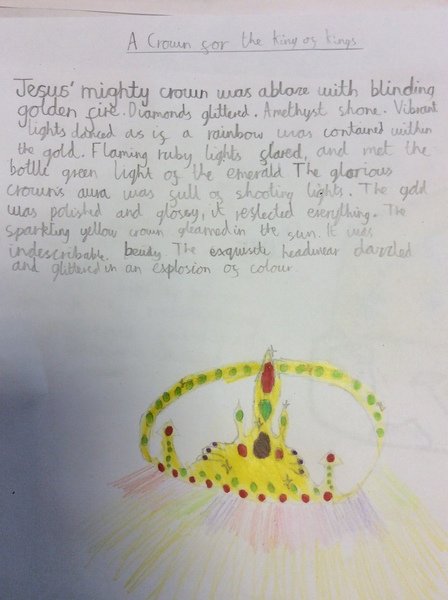 A Crown for the king of kings
Jesus' mighty crown was ablaze with blinding
golden fire. Diamonds glittered. Amethyst shone. Vibrant
lights danced as if a rainbow was contained within
the gold. Flaming ruby lights flared, and met the
bottle green light of the emerald The glorious
crowns aura was full of shooting lights. The gold
was polished and glossy, it reflected everything. The
sparkling yellow crown gleamed in the sun. It was
indescribable. beauty. The exquisite headwear dazzled
and glittered in an explosion of colour